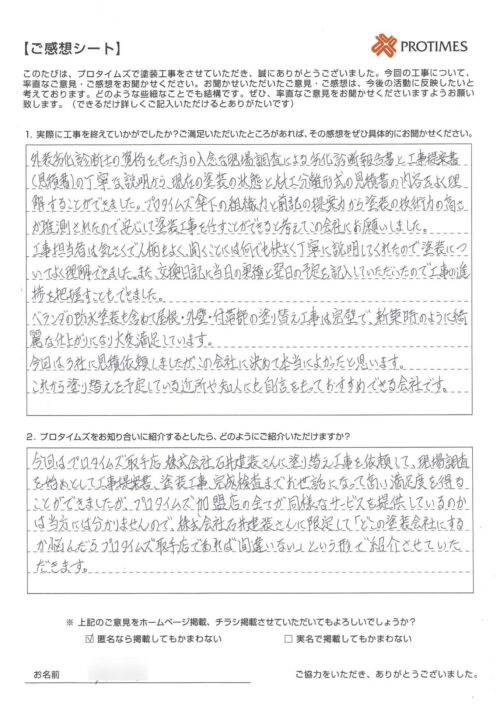 【ご感想シート】
PROTIMES
このたびは、プロタイムズで塗装工事をさせていただき、誠にありがとうございました。今回の工事について、
率直なご意見・ご感想をお聞かせください。お聞かせいただいたご意見・ご感想は、今後の活動に反映したいと
考えております。どのような些細なことでも結構です。ぜひ、率直なご意見をお聞かせくださいますようお願い
致します。（できるだけ詳しくご記入いただけるとありがたいです）
1. 実際に工事を終えていかがでしたか？ご満足いただいたところがあれば、その感想をぜひ具体的にお聞かせください。
外装劣化診断士の資格をもった方の入念な現場調査による劣化診断報告書と工事提案書
(見積書)の丁寧な説明から、現在の塗装の状態と材工分離形式の見積書の内容をよく理
解することができました。プロタイムズ傘下の組織力と前記の提案力から塗装の技術力の高さ
が推測されたので安心して塗装工事を任すことができると考えてこの会社にお願いしました。
工事担当者は気さくで人柄もよく、聞くことには何でも快よく丁寧に説明してくれたので塗装につ
いてよく理解できました。また、交換日記に当日の実績と翌日の予定を記入していただいたので工事の進
捗を把握することもできました。
ベランダの防水塗装も含めて屋根・外壁・付帯部の塗り替え工事は完璧で、新築時のように綺
麗な仕上がりになり大変満足しています。
今回は3社に見積依頼しましたが、この会社に決めて本当によかったと思います。
これから塗り替えを予定している近所や知人にも自信をもっておすすめできる会社です。
2. プロタイムズをお知り合いに紹介するとしたら、どのようにご紹介いただけますか？
今回はプロタイムズ取手店 株式会社石井建装さんに塗り替え工事を依頼して、現場調査
を始めとして工事提案書、塗装工事、完成検査までお世話になって高い満足度を得る
ことができましたが、プロタイムズ加盟店の全てが同様なサービスを提供しているのか
は当方には分かりませんので、株式会社石井建装さんに限定して「どこの塗装会社にする
か悩んだらプロタイムズ取手店であれば間違いない」という形でご紹介させていた
だきます。
※ 上記のご意見をホームページ掲載、チラシ掲載させていただいてもよろしいでしょうか？
☑ 匿名なら掲載してもかまわない
□ 実名で掲載してもかまわない
お名前
ご協力をいただき、ありがとうございました。